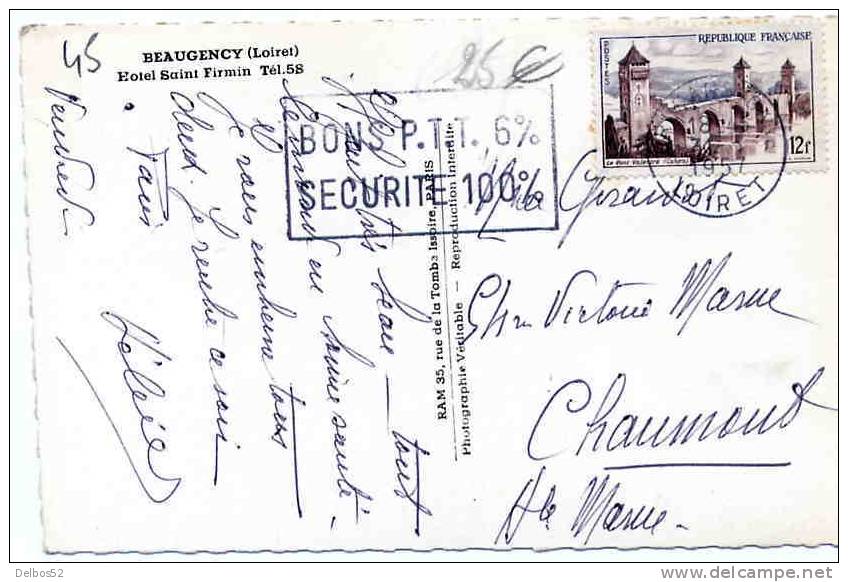 45
BEAUGENCY (Loiret)
Hotel Saint Firmin Tél.58
25 €
BONS P.T.T. 6%
SECURITE 100%
POSTES
REPUBLIQUE FRANÇAISE
Le Pont Valentré (Cahors)
12f
1957
LOIRET
RAM 35, rue de la Tombe Issoire, PARIS
Photographie Véritable — Reproduction Interdite
Vendredi
très beau — tout
en bonne santé.
Je vous embrasse tous
deux. Je rentre ce soir
Paris
Chaumont
Hte Marne
Delbos52